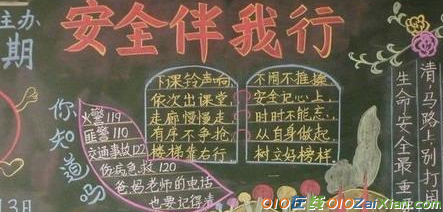 主办
期
安全伴我行
你知道吗
火警119
匪警110
交通事故122
伤病急救120
爸妈老师的电话
也要记得清
下课铃声响,
依次出课堂,
走廊慢慢走,
有序不争抢,
楼梯靠右行,
不闹不推搡,
安全记心上,
时时不能忘,
从自身做起,
树立好榜样,
生命安全最重
清,马路上别打闹
13月
010在线 010ZaiXian.com